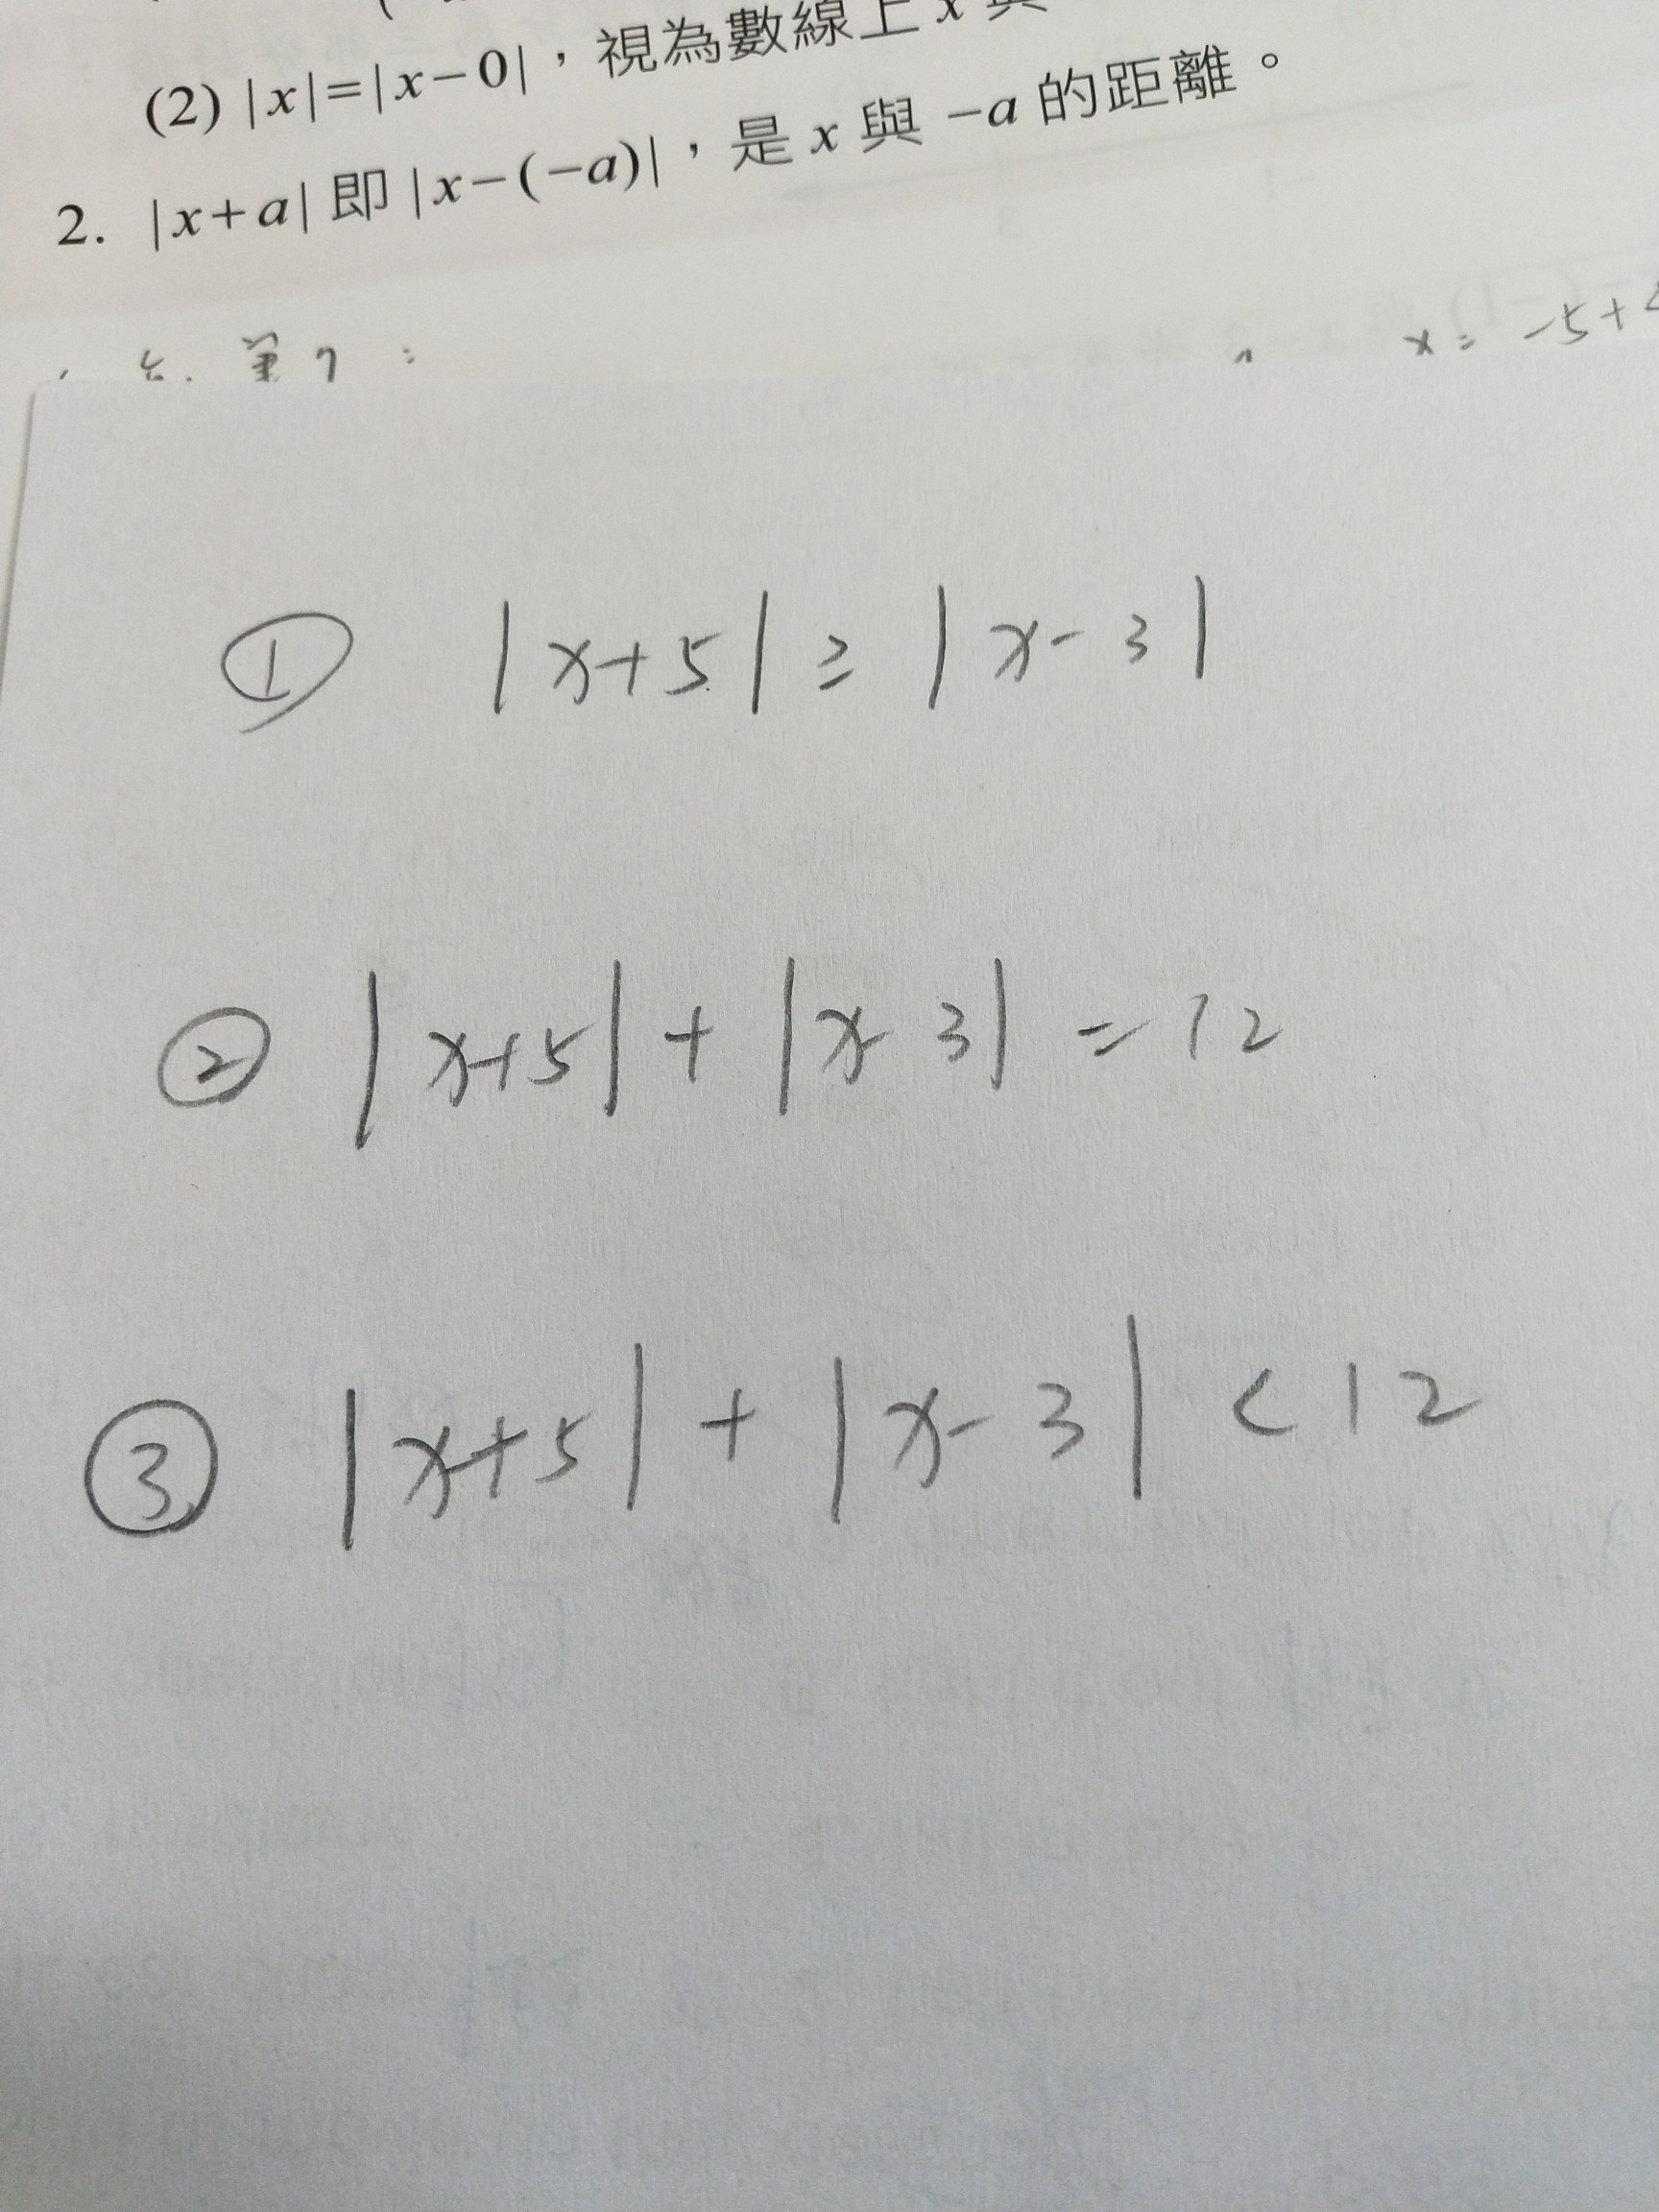 (2) |x|=|x−0|，視為數線上 x 與
2. |x+a| 即 |x−(−a)|，是 x 與 −a 的距離。
x = -5+
① |x+5| ≥ |x-3|
② |x+5| + |x-3| = 12
③ |x+5| + |x-3| < 12